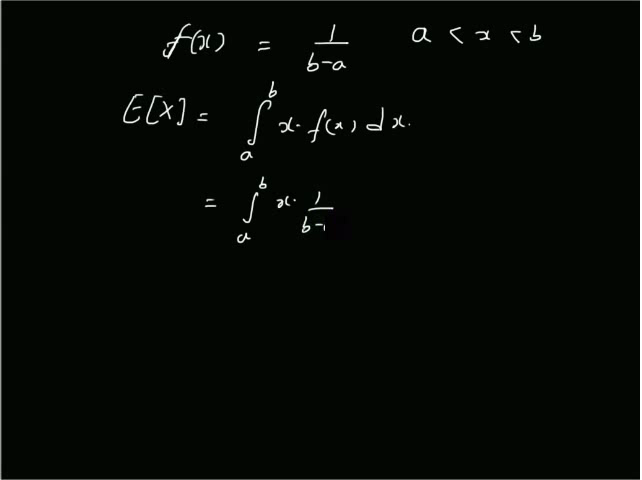 f(x) = 1/(b-a) a < x < b
E[X] = ∫_a^b x· f(x) dx.
= ∫_a^b x· 1/(b-